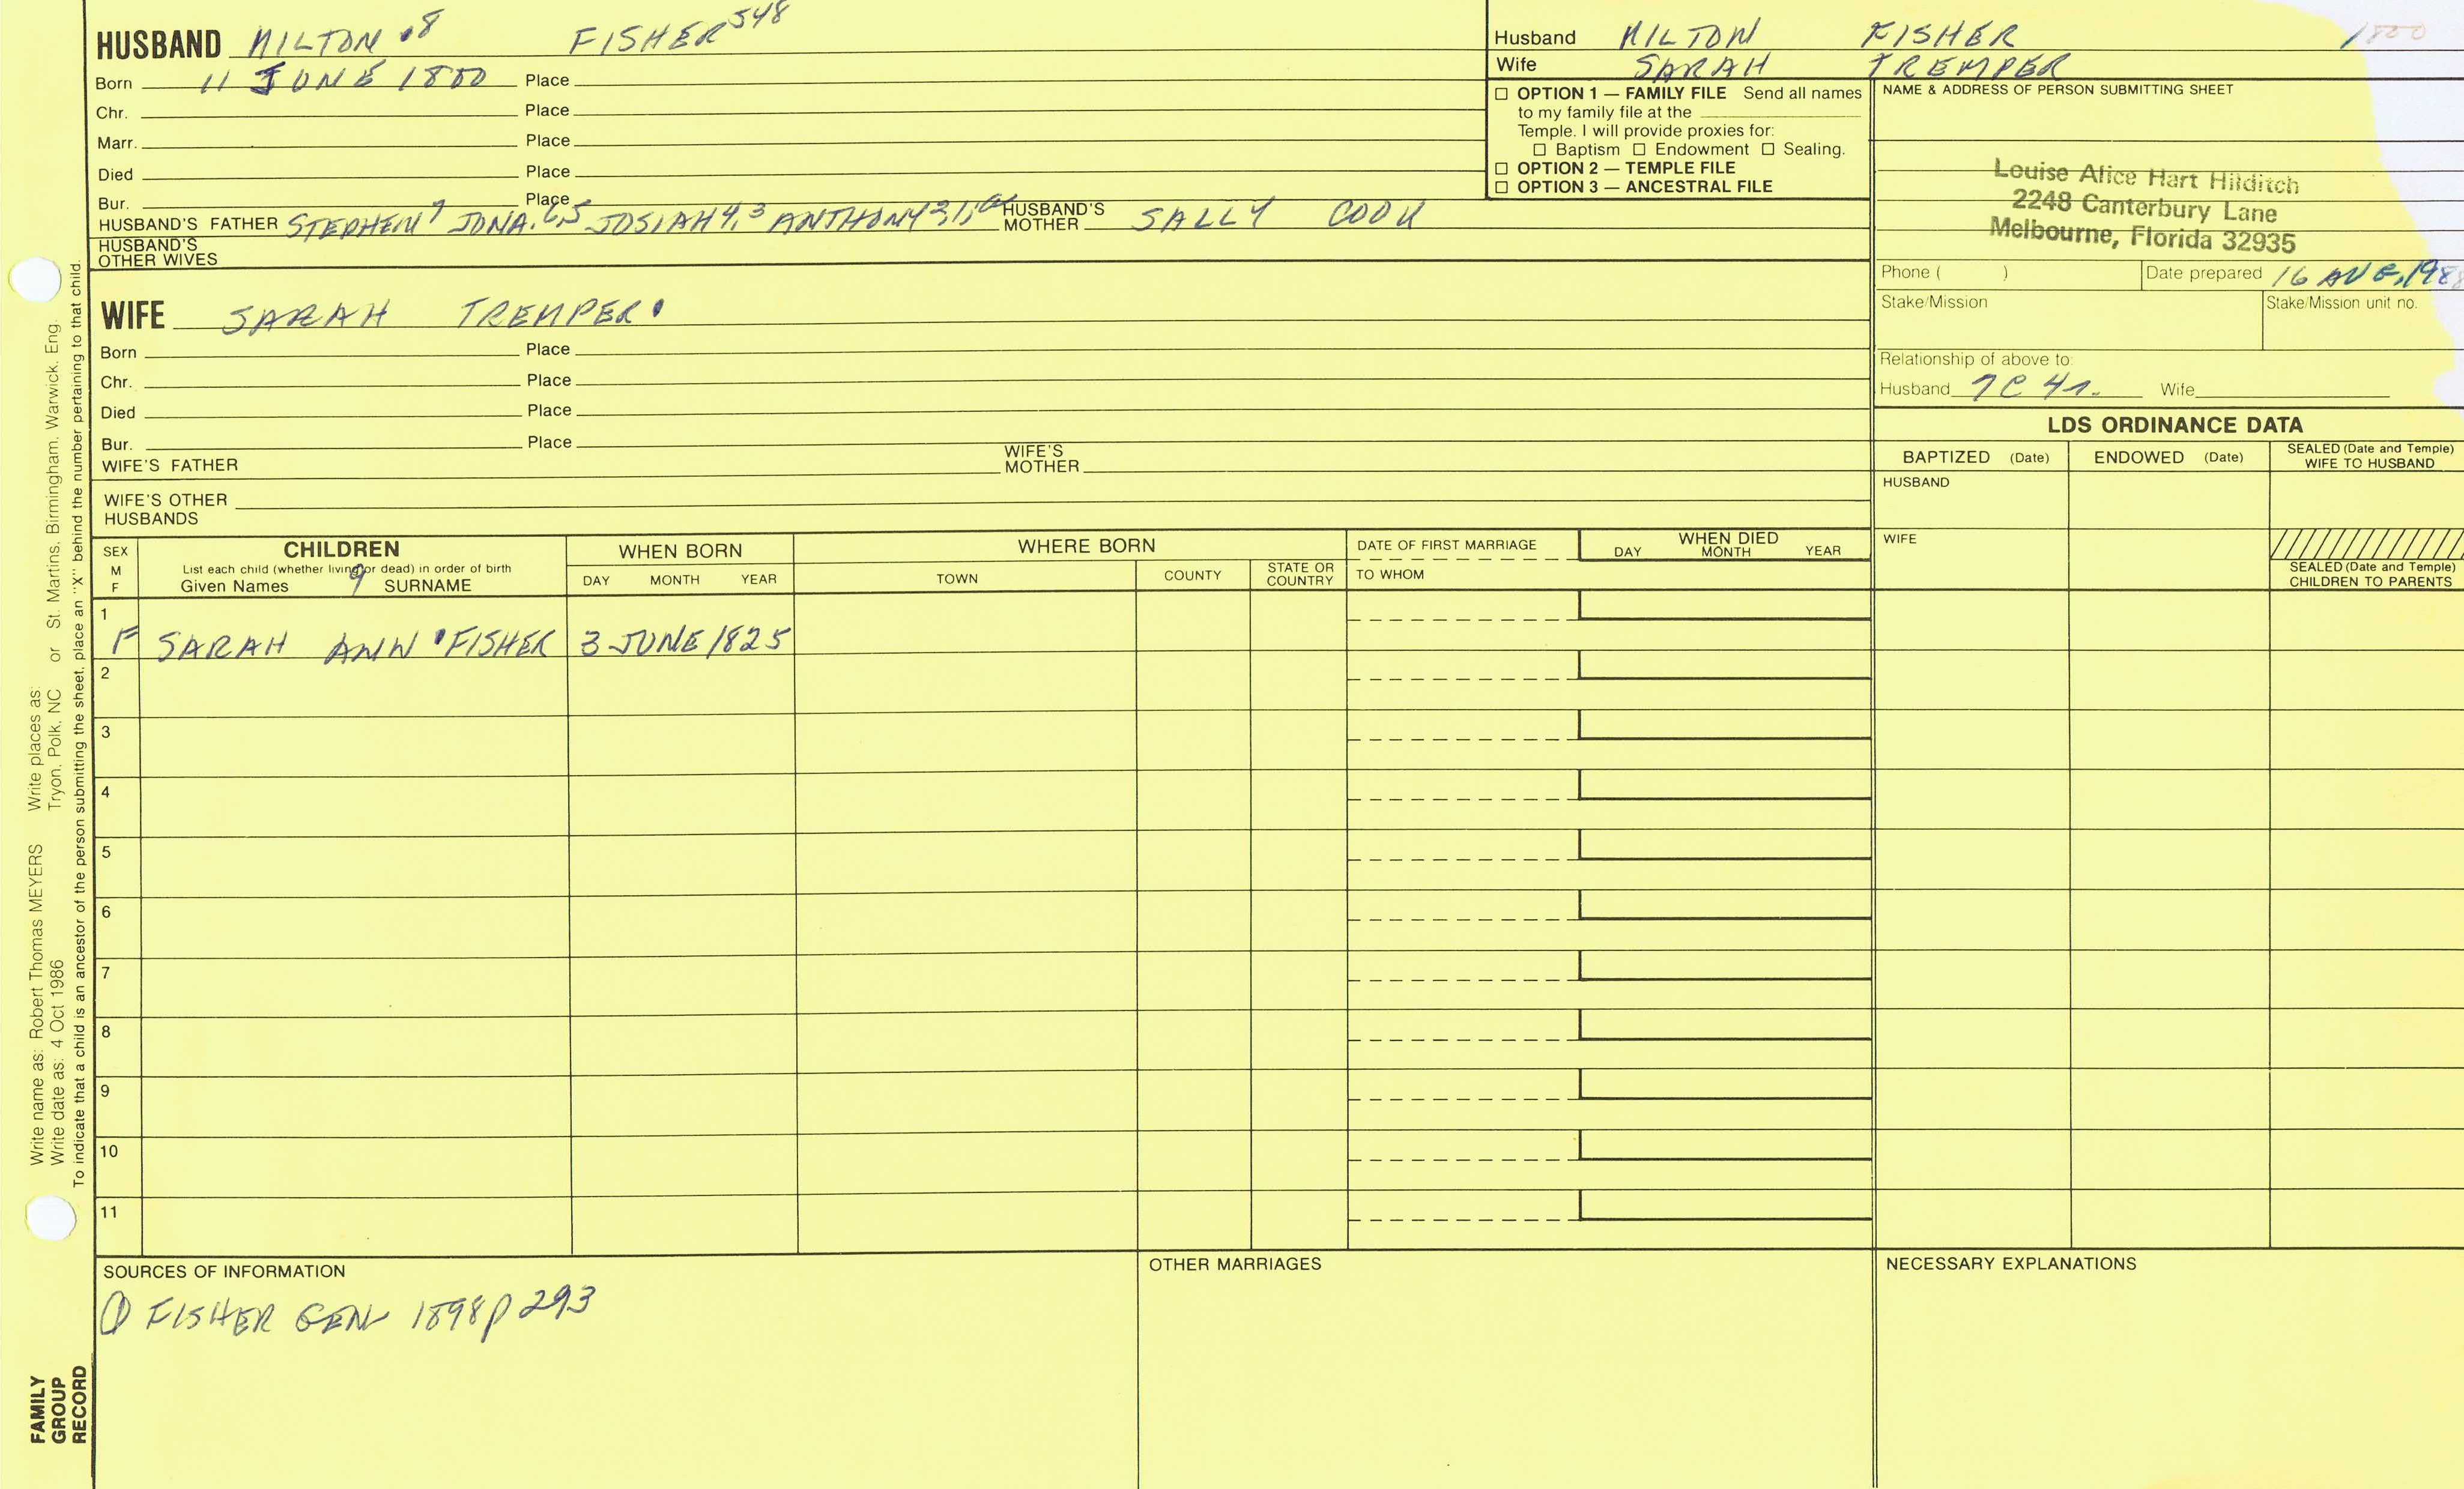 HUSBAND MILTON 8 FISHER 548
Born 11 JUNE 1800 Place
Chr. Place
Marr. Place
Died Place
Bur. Place
HUSBAND'S FATHER STEPHEN7 JONA.6,5 JOSIAH4,3 ANTHONY2,1, HUSBAND'S MOTHER SALLY COOK
HUSBAND'S OTHER WIVES
Husband MILTON FISHER 1800
Wife SARAH TREMPER
☐ OPTION 1 — FAMILY FILE Send all names
to my family file at the
Temple. I will provide proxies for:
☐ Baptism ☐ Endowment ☐ Sealing.
☐ OPTION 2 — TEMPLE FILE
☐ OPTION 3 — ANCESTRAL FILE
NAME & ADDRESS OF PERSON SUBMITTING SHEET
Louise Alice Hart Hilditch
2248 Canterbury Lane
Melbourne, Florida 32935
Phone ( ) Date prepared 16 AUG, 1988
Stake/Mission Stake/Mission unit no.
Relationship of above to:
Husband 7C 4r. Wife
WIFE SARAH TREMPER
Born Place
Chr. Place
Died Place
Bur. Place
WIFE'S FATHER WIFE'S MOTHER
WIFE'S OTHER HUSBANDS
LDS ORDINANCE DATA
BAPTIZED (Date) ENDOWED (Date) SEALED (Date and Temple) WIFE TO HUSBAND
HUSBAND
WIFE
SEALED (Date and Temple) CHILDREN TO PARENTS
SEX M F
CHILDREN
List each child (whether living or dead) in order of birth
Given Names 9 SURNAME
WHEN BORN
DAY MONTH YEAR
WHERE BORN
TOWN COUNTY STATE OR COUNTRY
DATE OF FIRST MARRIAGE
TO WHOM
WHEN DIED
DAY MONTH YEAR
1
F SARAH ANN FISHER 3 JUNE 1825
2
3
4
5
6
7
8
9
10
11
SOURCES OF INFORMATION
① FISHER GEN 1898 p 293
OTHER MARRIAGES
NECESSARY EXPLANATIONS
Write name as: Robert Thomas MEYERS Write places as: Tryon, Polk, NC or St. Martins, Birmingham, Warwick, Eng.
Write date as: 4 Oct 1986
To indicate that a child is an ancestor of the person submitting the sheet, place an "X" behind the number pertaining to that child.
FAMILY
GROUP
RECORD